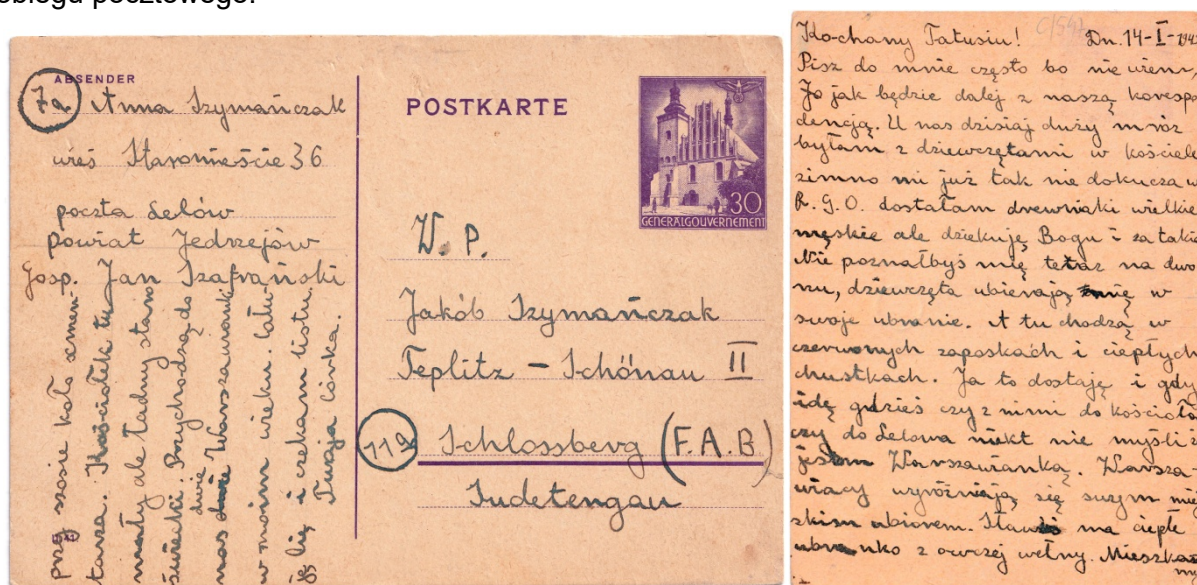 obiegu pocztowego.
ABSENDER
7a Anna Szymańczak
wieś Staromieście 36
poczta Lelów
powiat Jędrzejów
Gosp. Jan Szafrański
przy szosie koło cmen-
tarza. Kościołek tu
mały ale ładny staro
świecki. Przychodzą do
nas dwie Warszawianki
w moim wieku. Cału
ję Cię i czekam listu.
Twoja córka.
POSTKARTE
30
GENERALGOUVERNEMENT
W. P.
Jakób Szymańczak
Teplitz – Schönau II
11a Schlossberg (F.A.B)
Sudetengau
Kochany Tatusiu! Dn. 14-I-194
Pisz do mnie często bo nie wiem,
jak będzie dalej z naszą korespo
dencją. U nas dzisiaj duży mróz
byłam z dziewczętami w kościele
zimno mi już tak nie dokucza w
R. G. O. dostałam drewniaki wielkie
męskie ale dziękuję Bogu i za takie
Nie poznałbyś mię teraz na dwo
ru, dziewczęta ubierają mię w
swoje ubranie. A tu chodzą w
czerwonych zapaskach i ciepłych
chustkach. Ja to dostaję i gdy
idę gdzieś czy z nimi do kościoła
czy do Lelowa nikt nie myśli ż
jestem Warszawianką. Warsza-
wiacy wyróżniają się swym miej
skim ubiorem. ma ciepłe
ubranko z owczej wełny. Mieszka